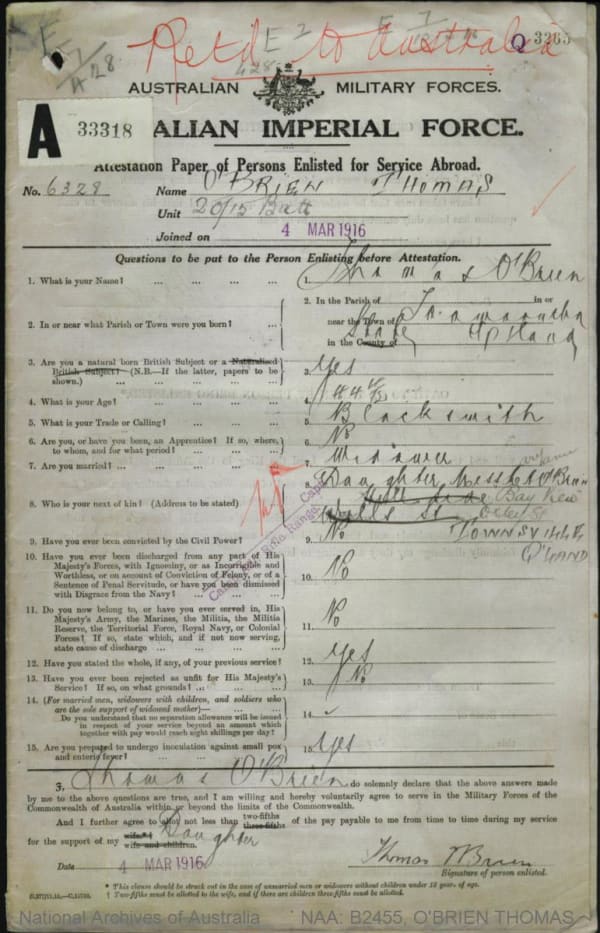 Retd to Australia
428
Q 3285
AUSTRALIAN MILITARY FORCES.
A 33318
ALIAN IMPERIAL FORCE.
Attestation Paper of Persons Enlisted for Service Abroad.
No. 6328 Name O'BRIEN THOMAS
Unit 20/15 Batt
Joined on 4 MAR 1916
Questions to be put to the Person Enlisting before Attestation.
1. What is your Name? ... ... ... ... 1. Thomas O'Brien
2. In or near what Parish or Town were you born? ... 2. In the Parish of in or
near the Town of
in the County of
3. Are you a natural born British Subject or a Naturalised
British Subject? (N.B.—If the latter, papers to be
shown.) ... ... ... ... ... 3. Yes
4. What is your Age? ... ... ... ... 4. 44
5. What is your Trade or Calling? ... ... ... 5. Blacksmith
6. Are you, or have you been, an Apprentice? If so, where,
to whom, and for what period? ... ... ... 6. No
7. Are you married? ... ... ... ... 7. Widower
8. Who is your next of kin? (Address to be stated) ... 8. Daughter Miss O'Brien
Bay View
St
TOWNSVILLE
Q'LAND
9. Have you ever been convicted by the Civil Power? ... 9. No
10. Have you ever been discharged from any part of His
Majesty's Forces, with Ignominy, or as Incorrigible and
Worthless, or on account of Conviction of Felony, or of a
Sentence of Penal Servitude, or have you been dismissed
with Disgrace from the Navy? ... ... ... 10. No
11. Do you now belong to, or have you ever served in, His
Majesty's Army, the Marines, the Militia, the Militia
Reserve, the Territorial Force, Royal Navy, or Colonial
Forces? If so, state which, and if not now serving,
state cause of discharge ... ... ... ... 11. No
12. Have you stated the whole, if any, of your previous service? 12. Yes
13. Have you ever been rejected as unfit for His Majesty's
Service? If so, on what grounds? ... ... ... 13. No
14. (For married men, widowers with children, and soldiers who
are the sole support of widowed mother)—
Do you understand that no separation allowance will be issued
in respect of your service beyond an amount which
together with pay would reach eight shillings per day? 14.
15. Are you prepared to undergo inoculation against small pox
and enteric fever? ... ... ... ... 15. Yes
I, Thomas O'Brien do solemnly declare that the above answers made
by me to the above questions are true, and I am willing and hereby voluntarily agree to serve in the Military Forces of the
Commonwealth of Australia within or beyond the limits of the Commonwealth.
And I further agree to allot not less than two-fifths three-fifths of the pay payable to me from time to time during my service
for the support of my wife* wife and children. Daughter
Date 4 MAR 1916 Thomas O'Brien
Signature of person enlisted.
* This clause should be struck out in the case of unmarried men or widowers without children under 18 years of age.
† Two-fifths must be allotted to the wife, and if there are children three-fifths must be allotted.
National Archives of Australia NAA: B2455, O'BRIEN THOMAS